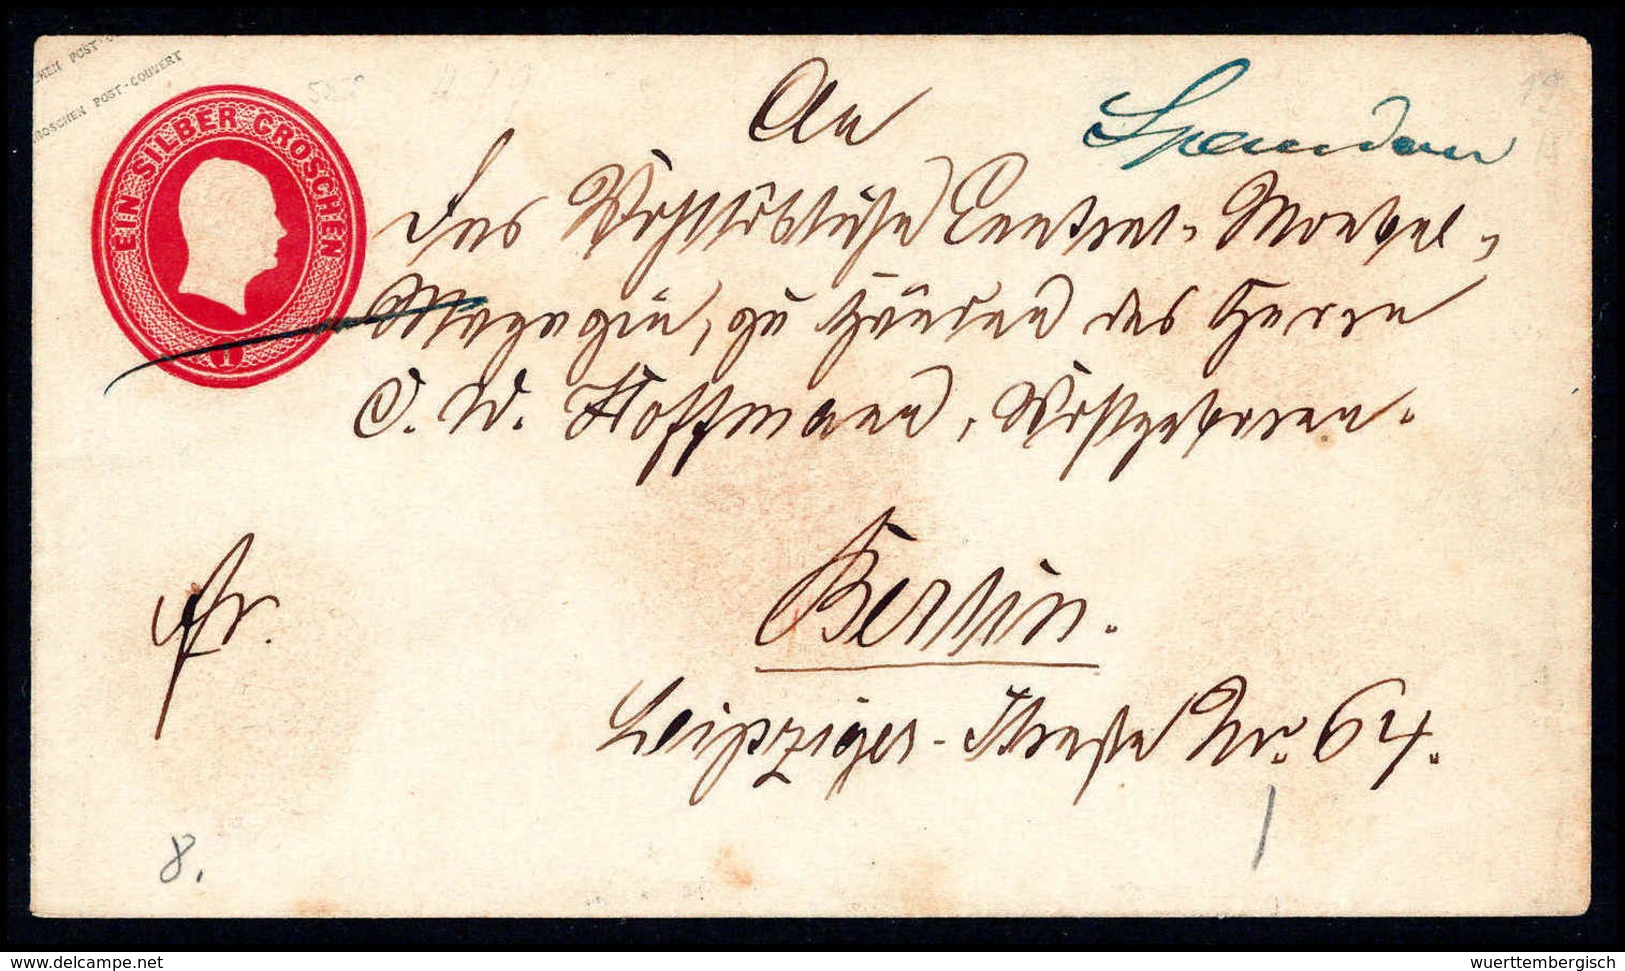 CHEN POST-C
ROSCHEN POST-COUVERT
EIN SILBER GROSCHEN
1
An
Spandau
Das Wohllöbliche Central-Moebel-
Magazin, zu Händen des Herrn
C. W. Hoffmann, Wohlgeboren.
fr.
Berlin.
Leipziger-Strasse Nr. 64.
8.
de.delcampe.net
wuerttembergisch